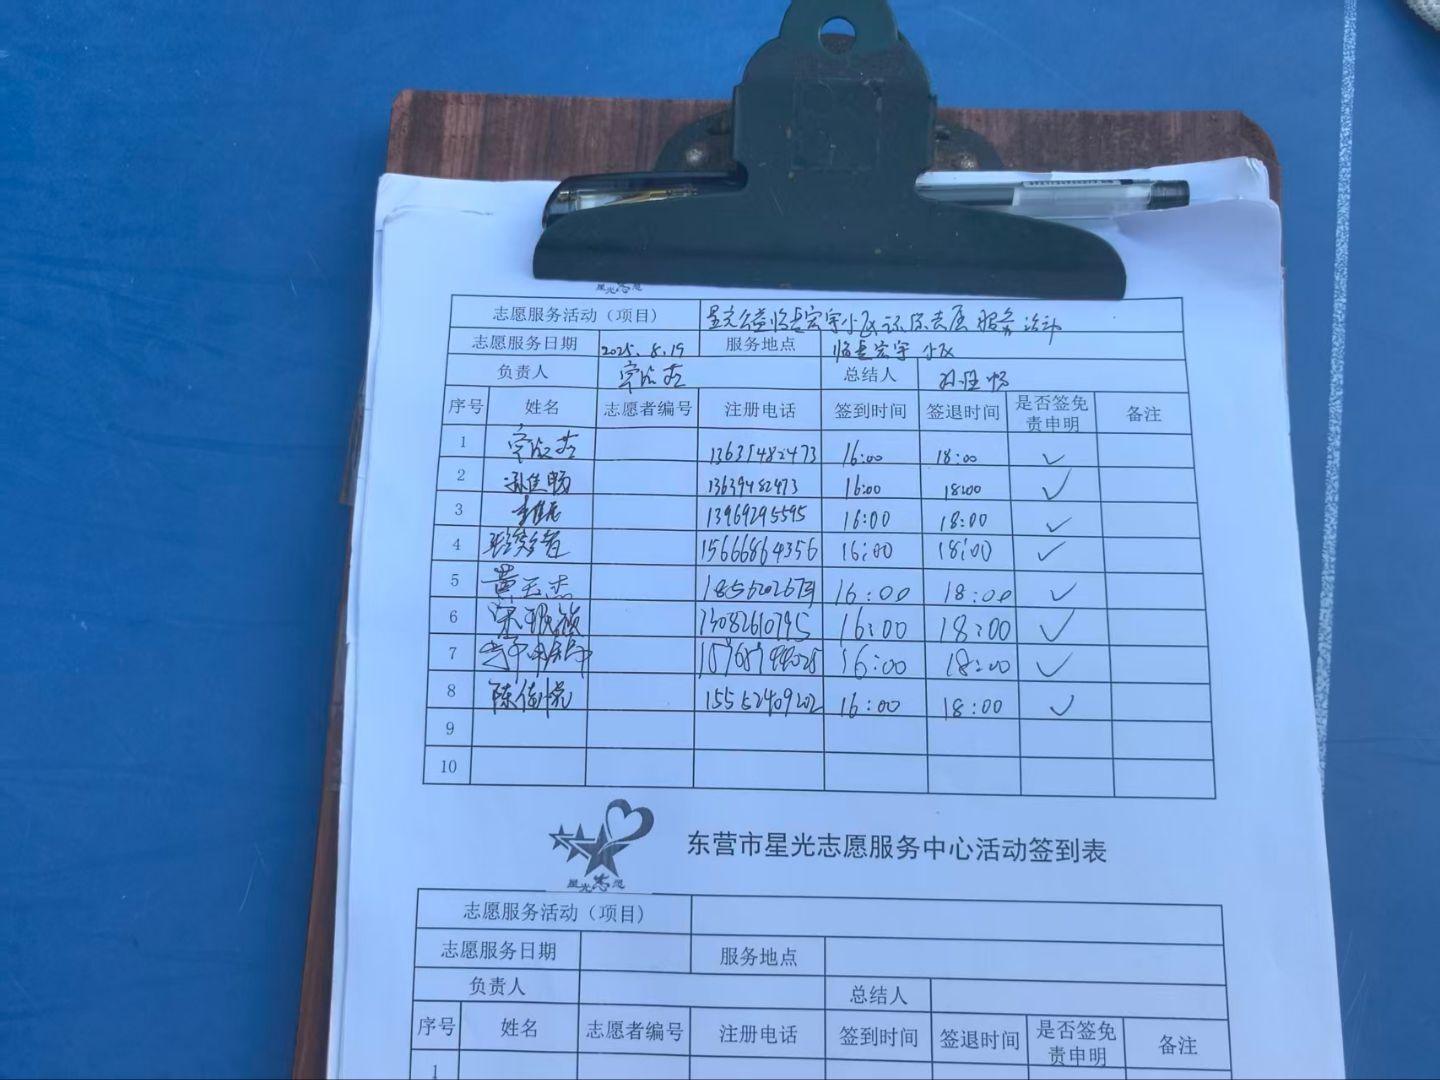 星光志愿
志愿服务活动（项目） 星光公益临 宏宇小区 志愿服务活动
志愿服务日期 2025.8.19 服务地点 临 宏宇 小区
负责人 总结人 孙佳畅
序号 姓名 志愿者编号 注册电话 签到时间 签退时间 是否签免责申明 备注
1 16:00 18:00 ✓
2 孙佳畅 13639482473 16:00 18:00 ✓
3 13969295595 16:00 18:00 ✓
4 15666864356 16:00 18:00 ✓
5 黄玉杰 16:00 18:00 ✓
6 13082610795 16:00 18:00 ✓
7 16:00 18:00 ✓
8 陈佳悦 15552409202 16:00 18:00 ✓
9
10
星光志愿
东营市星光志愿服务中心活动签到表
志愿服务活动（项目）
志愿服务日期 服务地点
负责人 总结人
序号 姓名 志愿者编号 注册电话 签到时间 签退时间 是否签免责申明 备注
1